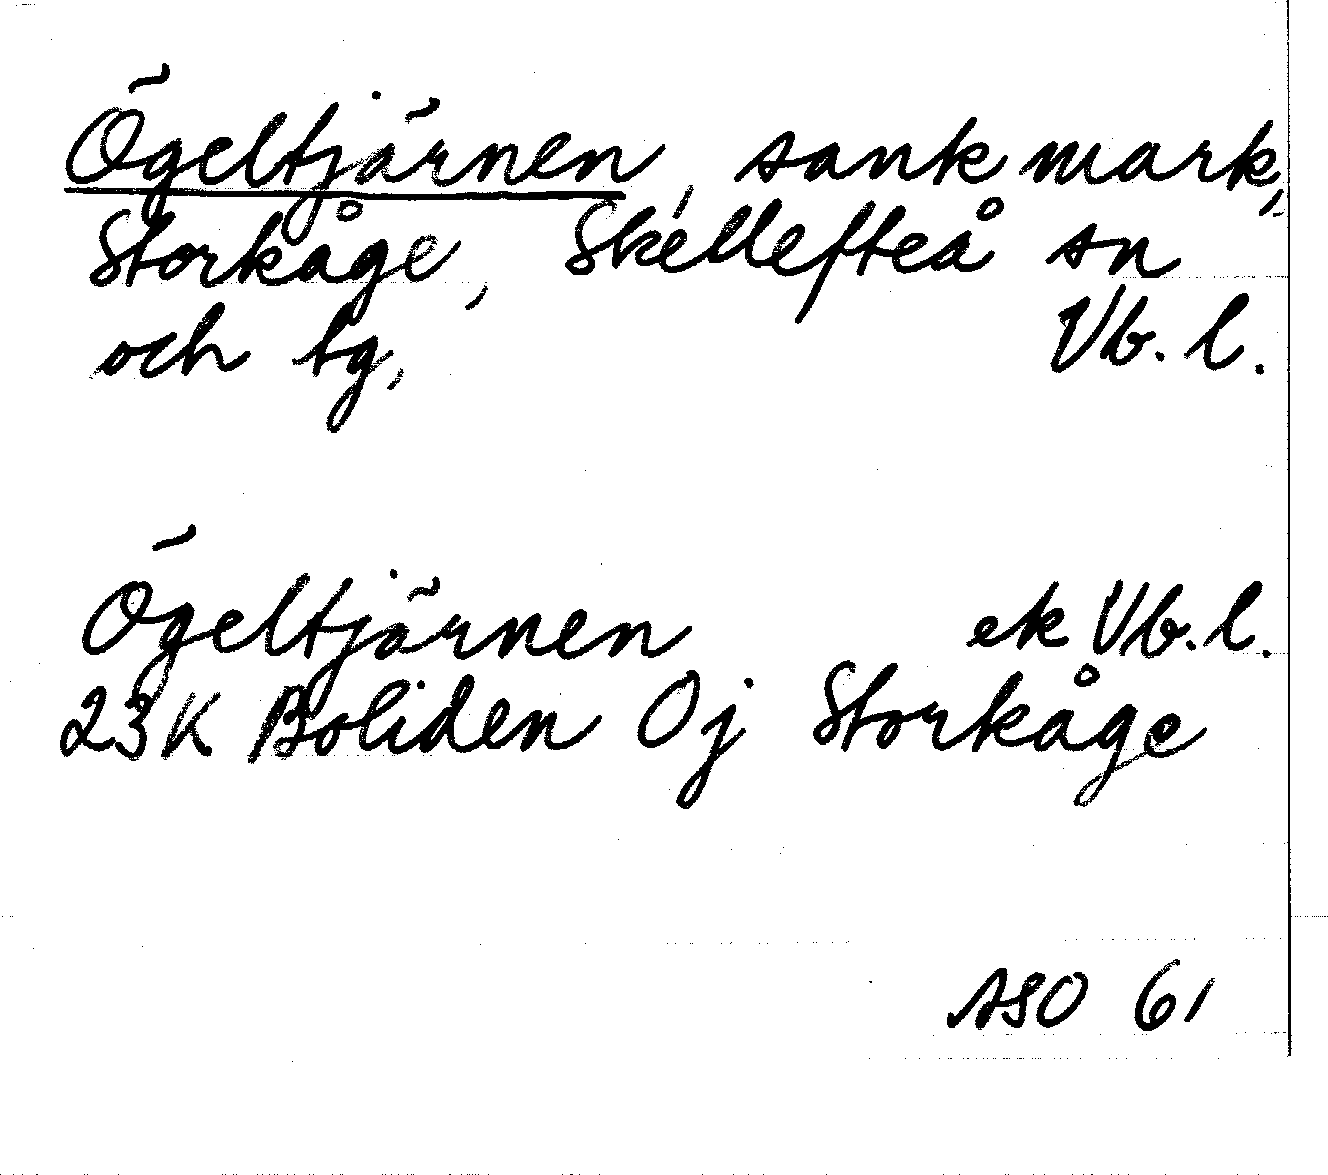 Ögeltjärnen, sank mark,
Storkåge, Skellefteå sn
och tg, Vb. l.
Ögeltjärnen ek Vb. l.
23K Boliden 0j Storkåge
ASO 61